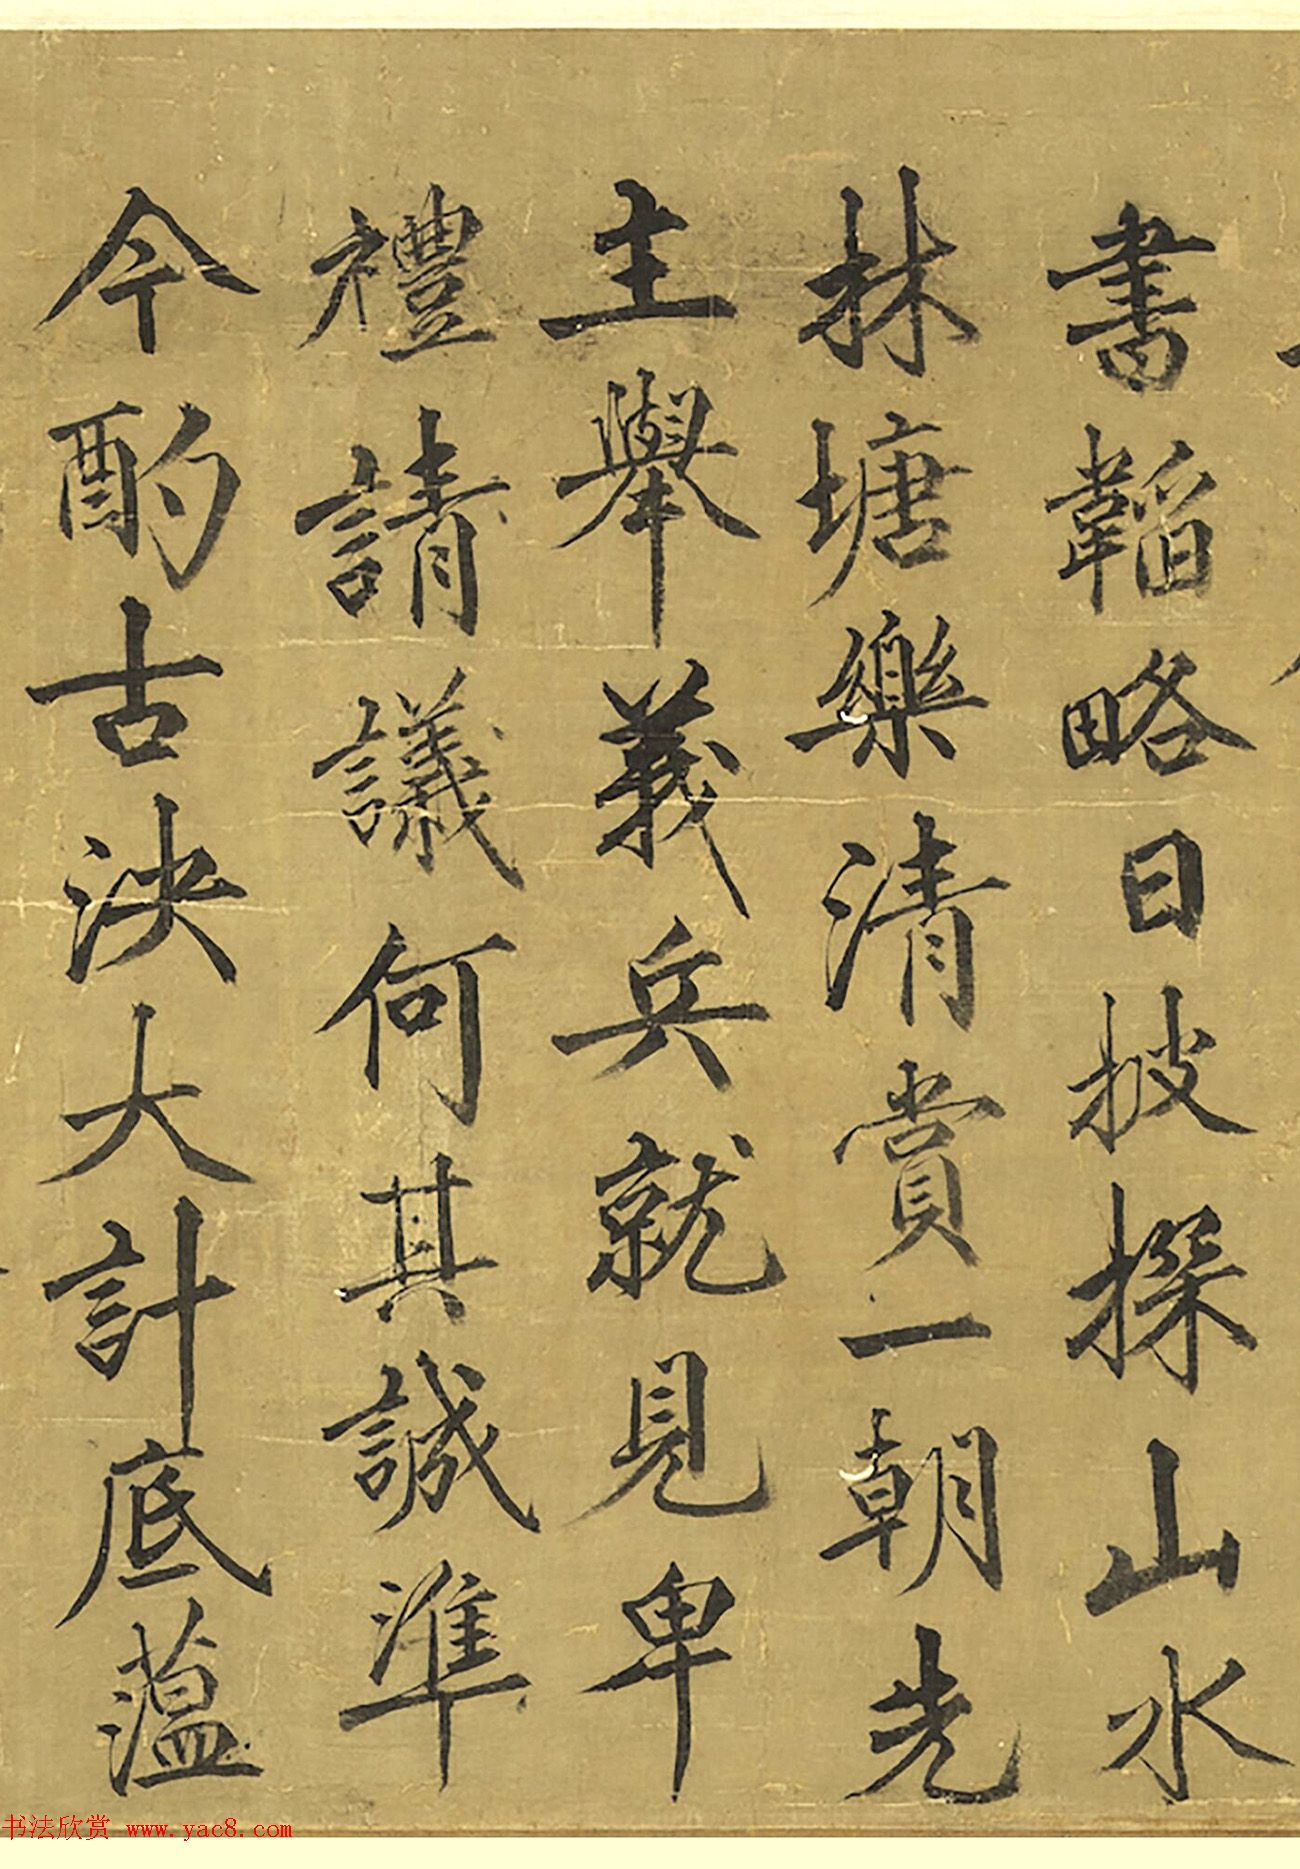 書韜略日披探山水
林塘樂清賞一朝先
主舉義兵就見卑
禮請議何其誠準
今酌古決大計底蕴
书法欣赏 www.yac8.com